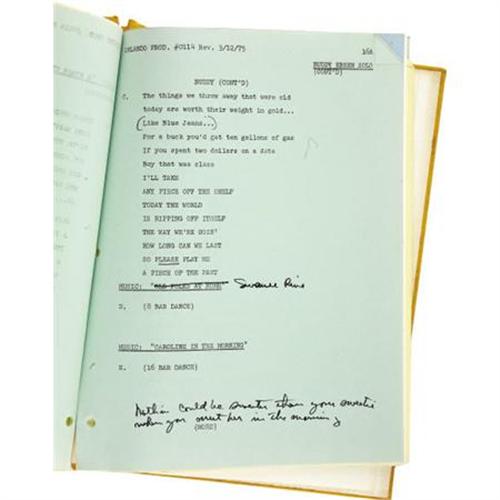 ORLANDO PROD. #0114 Rev. 3/12/75 16A
BUDDY EBSEN SOLO
(CONT'D)
BUDDY (CONT'D)
C. The things we threw away that were old
today are worth their weight in gold...
(Like Blue Jeans...)
For a buck you'd get ten gallons of gas
If you spent two dollars on a date
Boy that was class
I'LL TAKE
ANY PIECE OFF THE SHELF
TODAY THE WORLD
IS RIPPING OFF ITSELF
THE WAY WE'RE GOIN'
HOW LONG CAN WE LAST
SO PLEASE PLAY ME
A PIECE OF THE PAST
MUSIC: "OLD FOLKS AT HOME" Swanee River
D. (8 BAR DANCE)
MUSIC: "CAROLINE IN THE MORNING"
E. (16 BAR DANCE)
Nothin could be sweeter than your sweetie
when you meet her in the morning
(MORE)